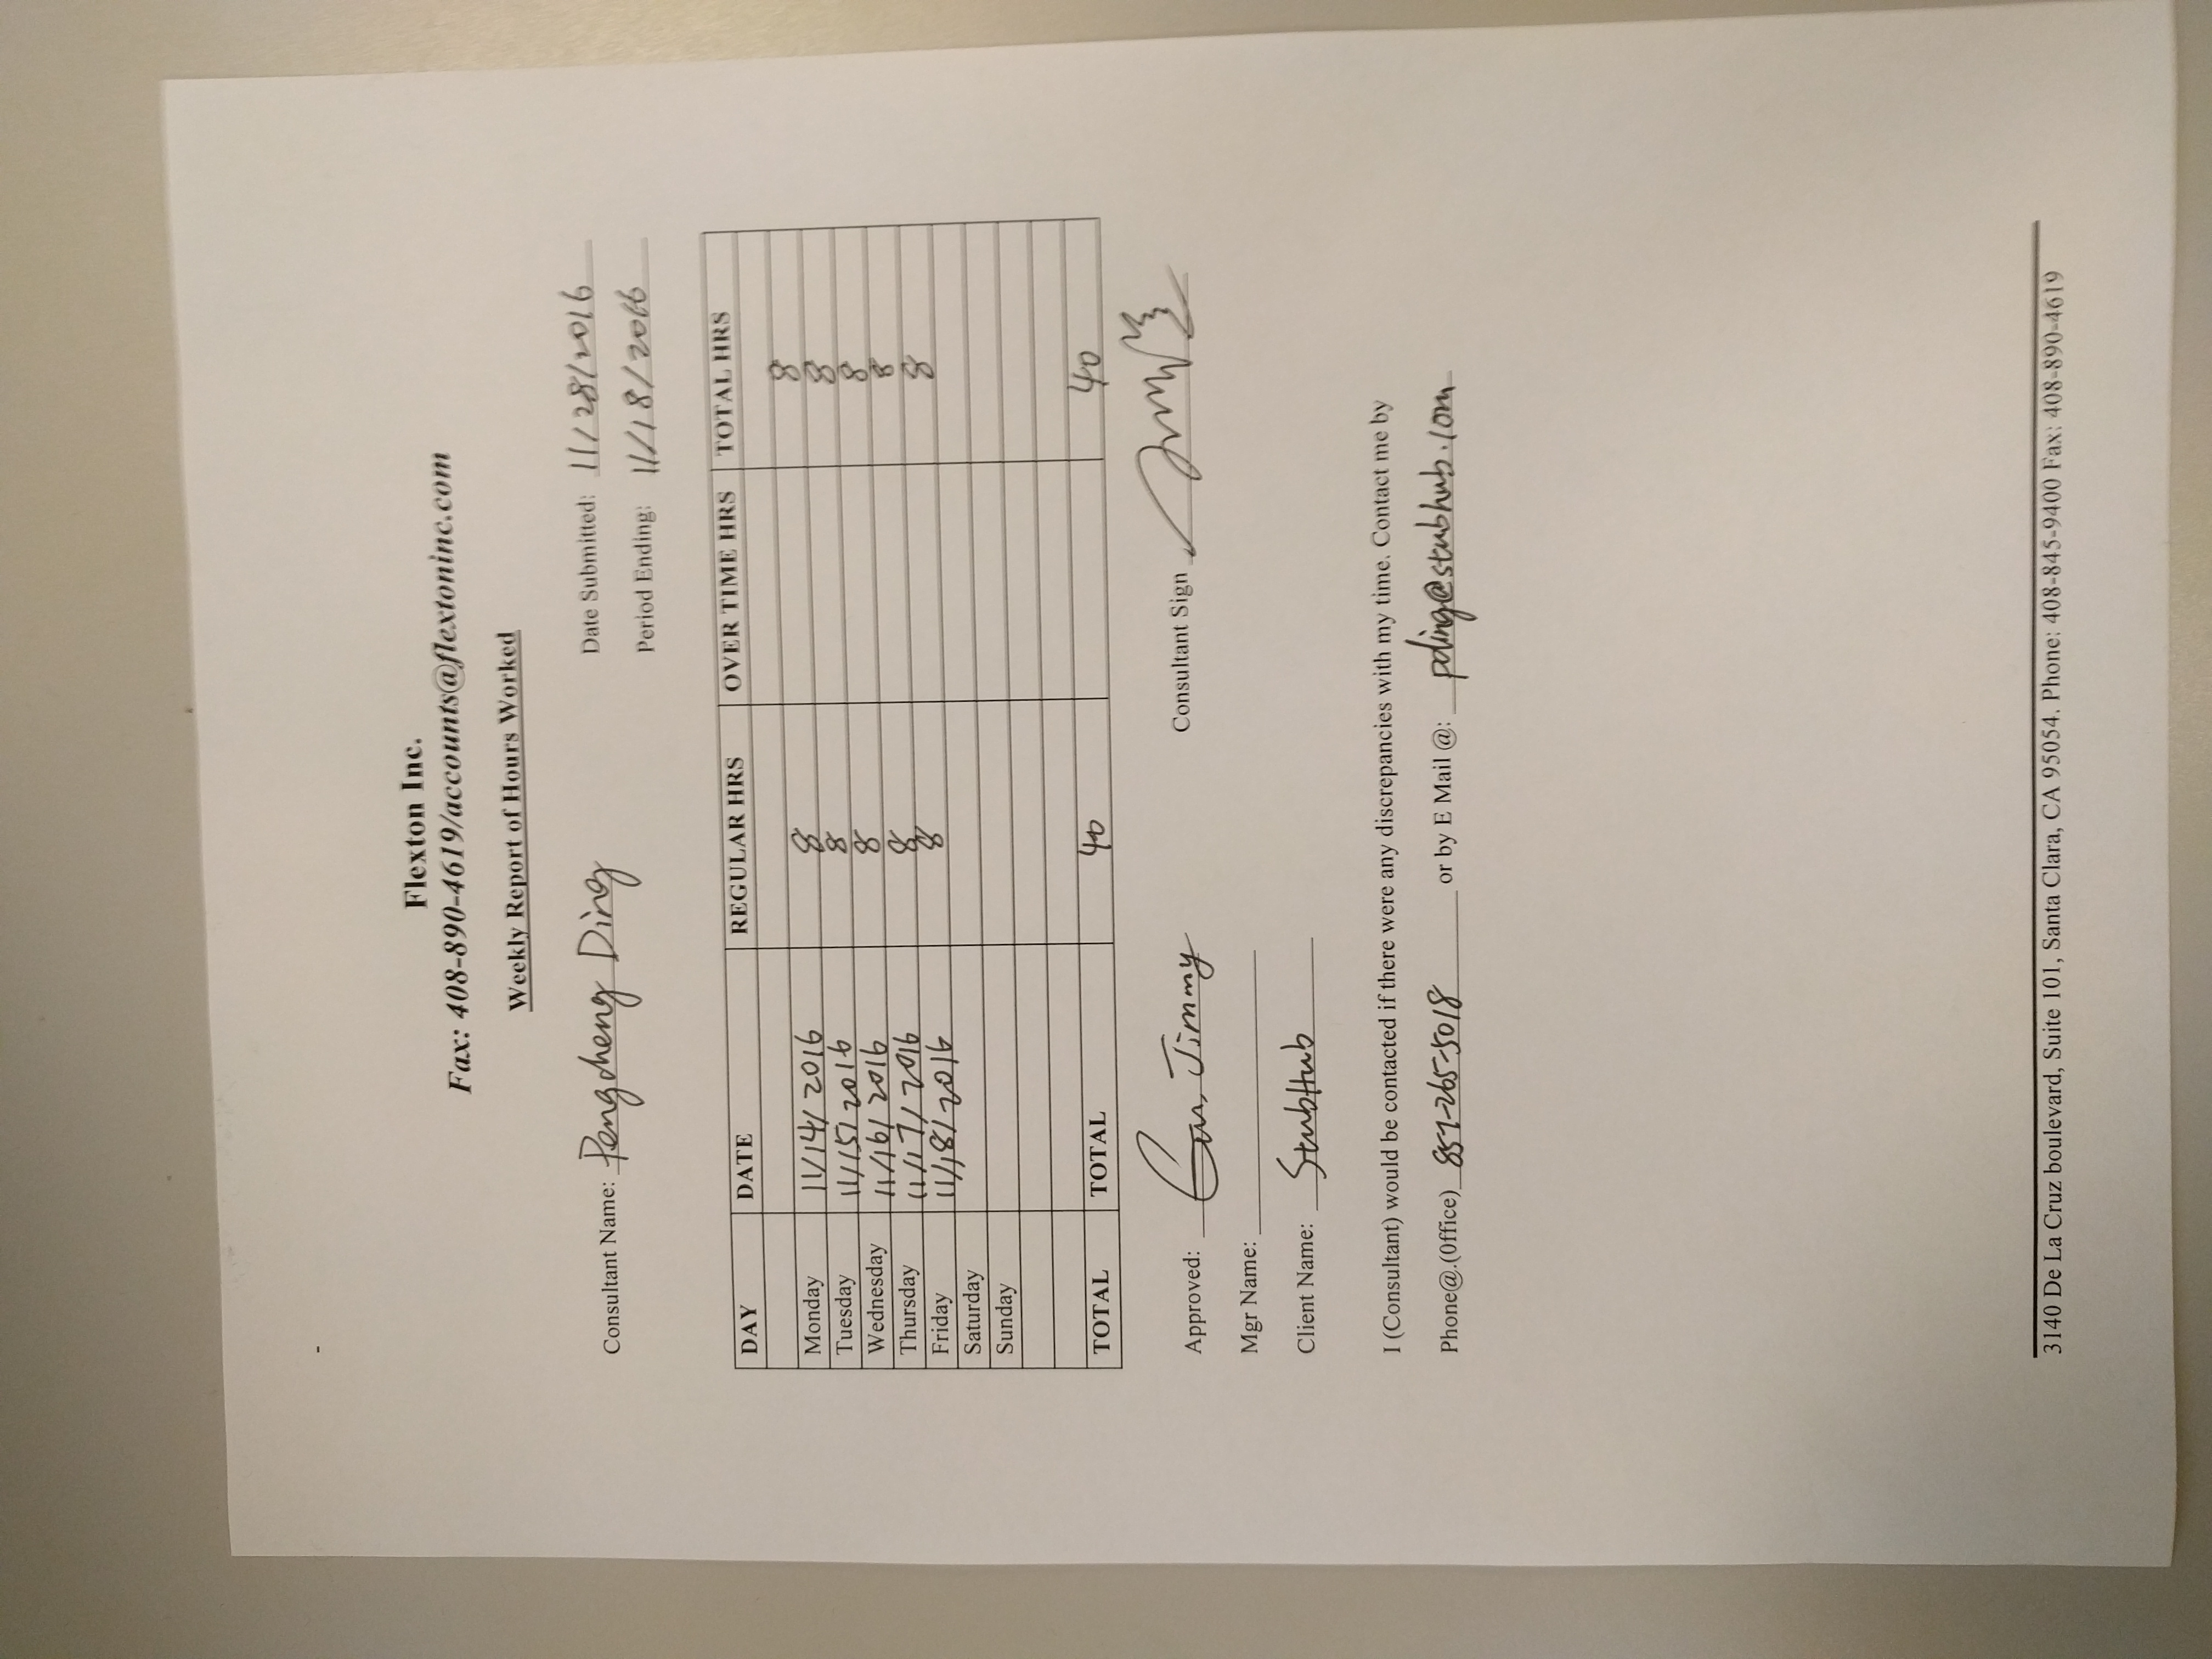 Flexton Inc.
Fax: 408-890-4619/accounts@flextoninc.com
Weekly Report of Hours Worked
Consultant Name: Pengcheng Ding Date Submitted: 11/28/2016
Period Ending: 11/18/2016
DAY DATE REGULAR HRS OVER TIME HRS TOTAL HRS
Monday 11/14/2016 8 8
Tuesday 11/15/2016 8 8
Wednesday 11/16/2016 8 8
Thursday 11/17/2016 8 8
Friday 11/18/2016 8 8
Saturday
Sunday
TOTAL TOTAL 40 40
Approved: Jimmy Consultant Sign
Mgr Name:
Client Name: StubHub
I (Consultant) would be contacted if there were any discrepancies with my time. Contact me by
Phone@.(Office) 857-265-5018 or by E Mail @: pding@stubhub.com
3140 De La Cruz boulevard, Suite 101, Santa Clara, CA 95054. Phone: 408-845-9400 Fax: 408-890-4619